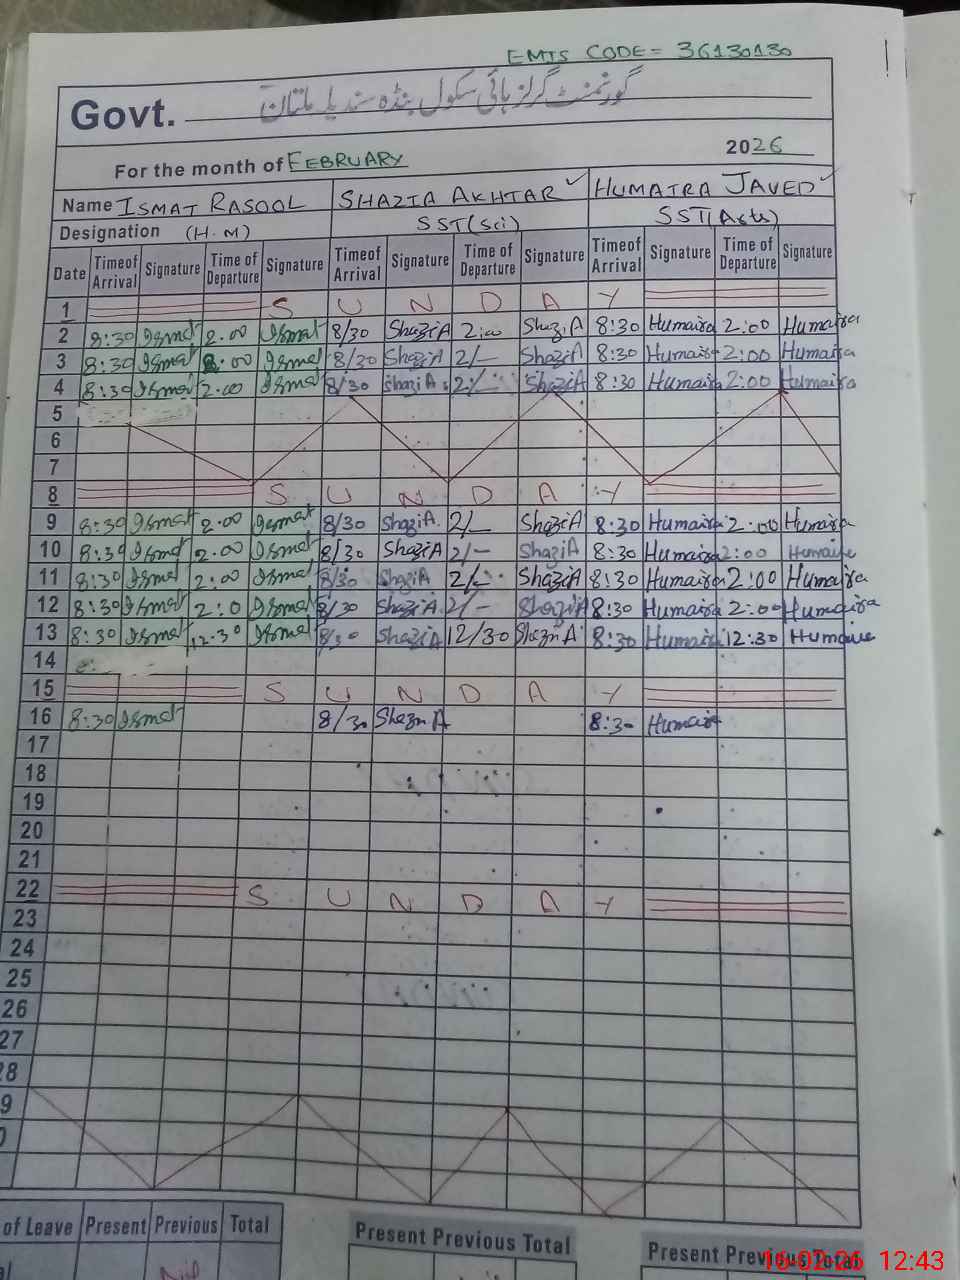 EMIS CODE= 36130130
Govt. گورنمنٹ گرلز ہائی سکول بنڈہ سندیلہ ملتان
For the month of FEBRUARY 2026
Name ISMAT RASOOL SHAZIA AKHTAR ✓ HUMAIRA JAVED ✓
Designation (H.M) SST(Sci) SST(Arts)
Date Time of Arrival Signature Time of Departure Signature Time of Arrival Signature Time of Departure Signature Time of Arrival Signature Time of Departure Signature
1 S U N D A Y
2 8:30 Ismat 2.00 Ismat 8/30 ShaziA 2:00 ShaziA 8:30 Humaira 2:00 Humaira
3 8:30 Ismat 2.00 Ismat 8/30 ShaziA 2/- ShaziA 8:30 Humaira 2:00 Humaira
4 8:30 Ismat 2.00 Ismat 8/30 ShaziA 2/- ShaziA 8:30 Humaira 2:00 Humaira
5
6
7
8 S U N D A Y
9 8:30 Ismat 2.00 Ismat 8/30 ShaziA 2/- ShaziA 8:30 Humaira 2:00 Humaira
10 8:30 Ismat 2.00 Ismat 8/30 ShaziA 2/- ShaziA 8:30 Humaira 2:00 Humaira
11 8:30 Ismat 2:00 Ismat 8/30 ShaziA 2/- ShaziA 8:30 Humaira 2:00 Humaira
12 8:30 Ismat 2:0 Ismat 8/30 ShaziA 2/- ShaziA 8:30 Humaira 2:00 Humaira
13 8:30 Ismat 12:30 Ismat 8/30 ShaziA 12/30 ShaziA 8:30 Humaira 12:30 Humaira
14
15 S U N D A Y
16 8:30 Ismat 8/30 ShaziA 8:30 Humaira
17
18
19
20
21
22 S U N D A Y
23
24
25
26
27
28
9
of Leave Present Previous Total Present Previous Total Present Previous Total
Nil
16-02-26 12:43